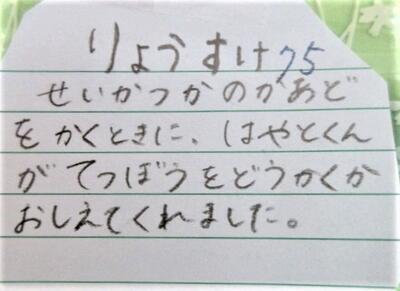 りょうすけ75
せいかつかのかあど
をかくときに、はやとくん
がてつぼうをどうかくか
おしえてくれました。